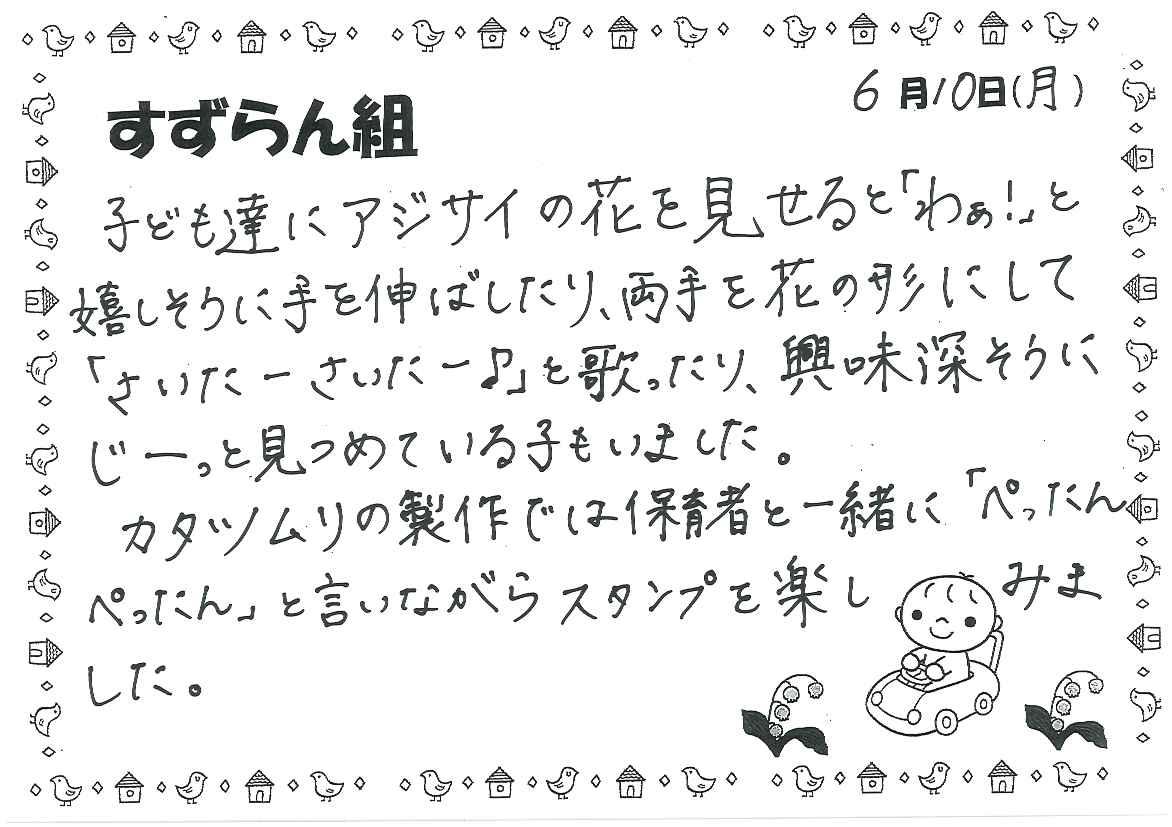 6月10日(月)
すずらん組
子ども達にアジサイの花を見せると「わぁ!」と
嬉しそうに手を伸ばしたり、両手を花の形にして
「さいたーさいたー♪」と歌ったり、興味深そうに
じーっと見つめている子もいました。
カタツムリの製作では保育者と一緒に「ぺったん
ぺったん」と言いながらスタンプを楽しみま
した。